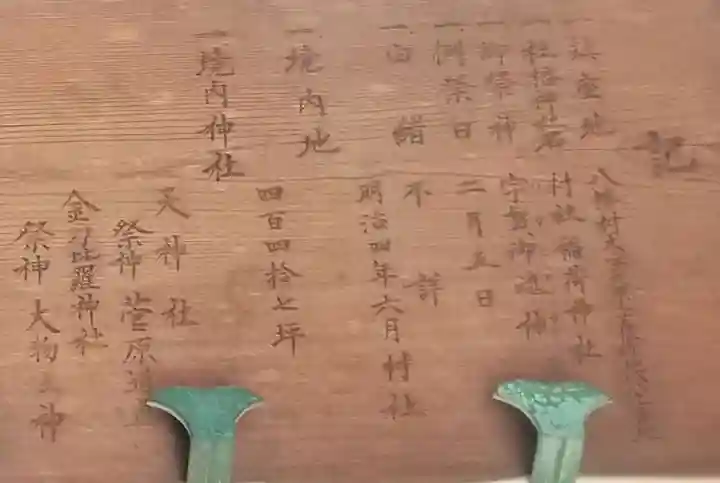 記
一鎮座地 八幡村大字
一社格神名 村社 稲荷神社
一御祭神 宇賀御魂神
一例祭日 二月五日
一由緒 不詳
明治四年六月村社
一境内地 四百四拾七坪
一境内神社
天神社
祭神 菅原道
金刀比羅神社
祭神 大物主神